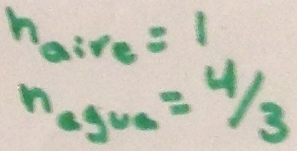 n aire = 1
n agua = 4/3